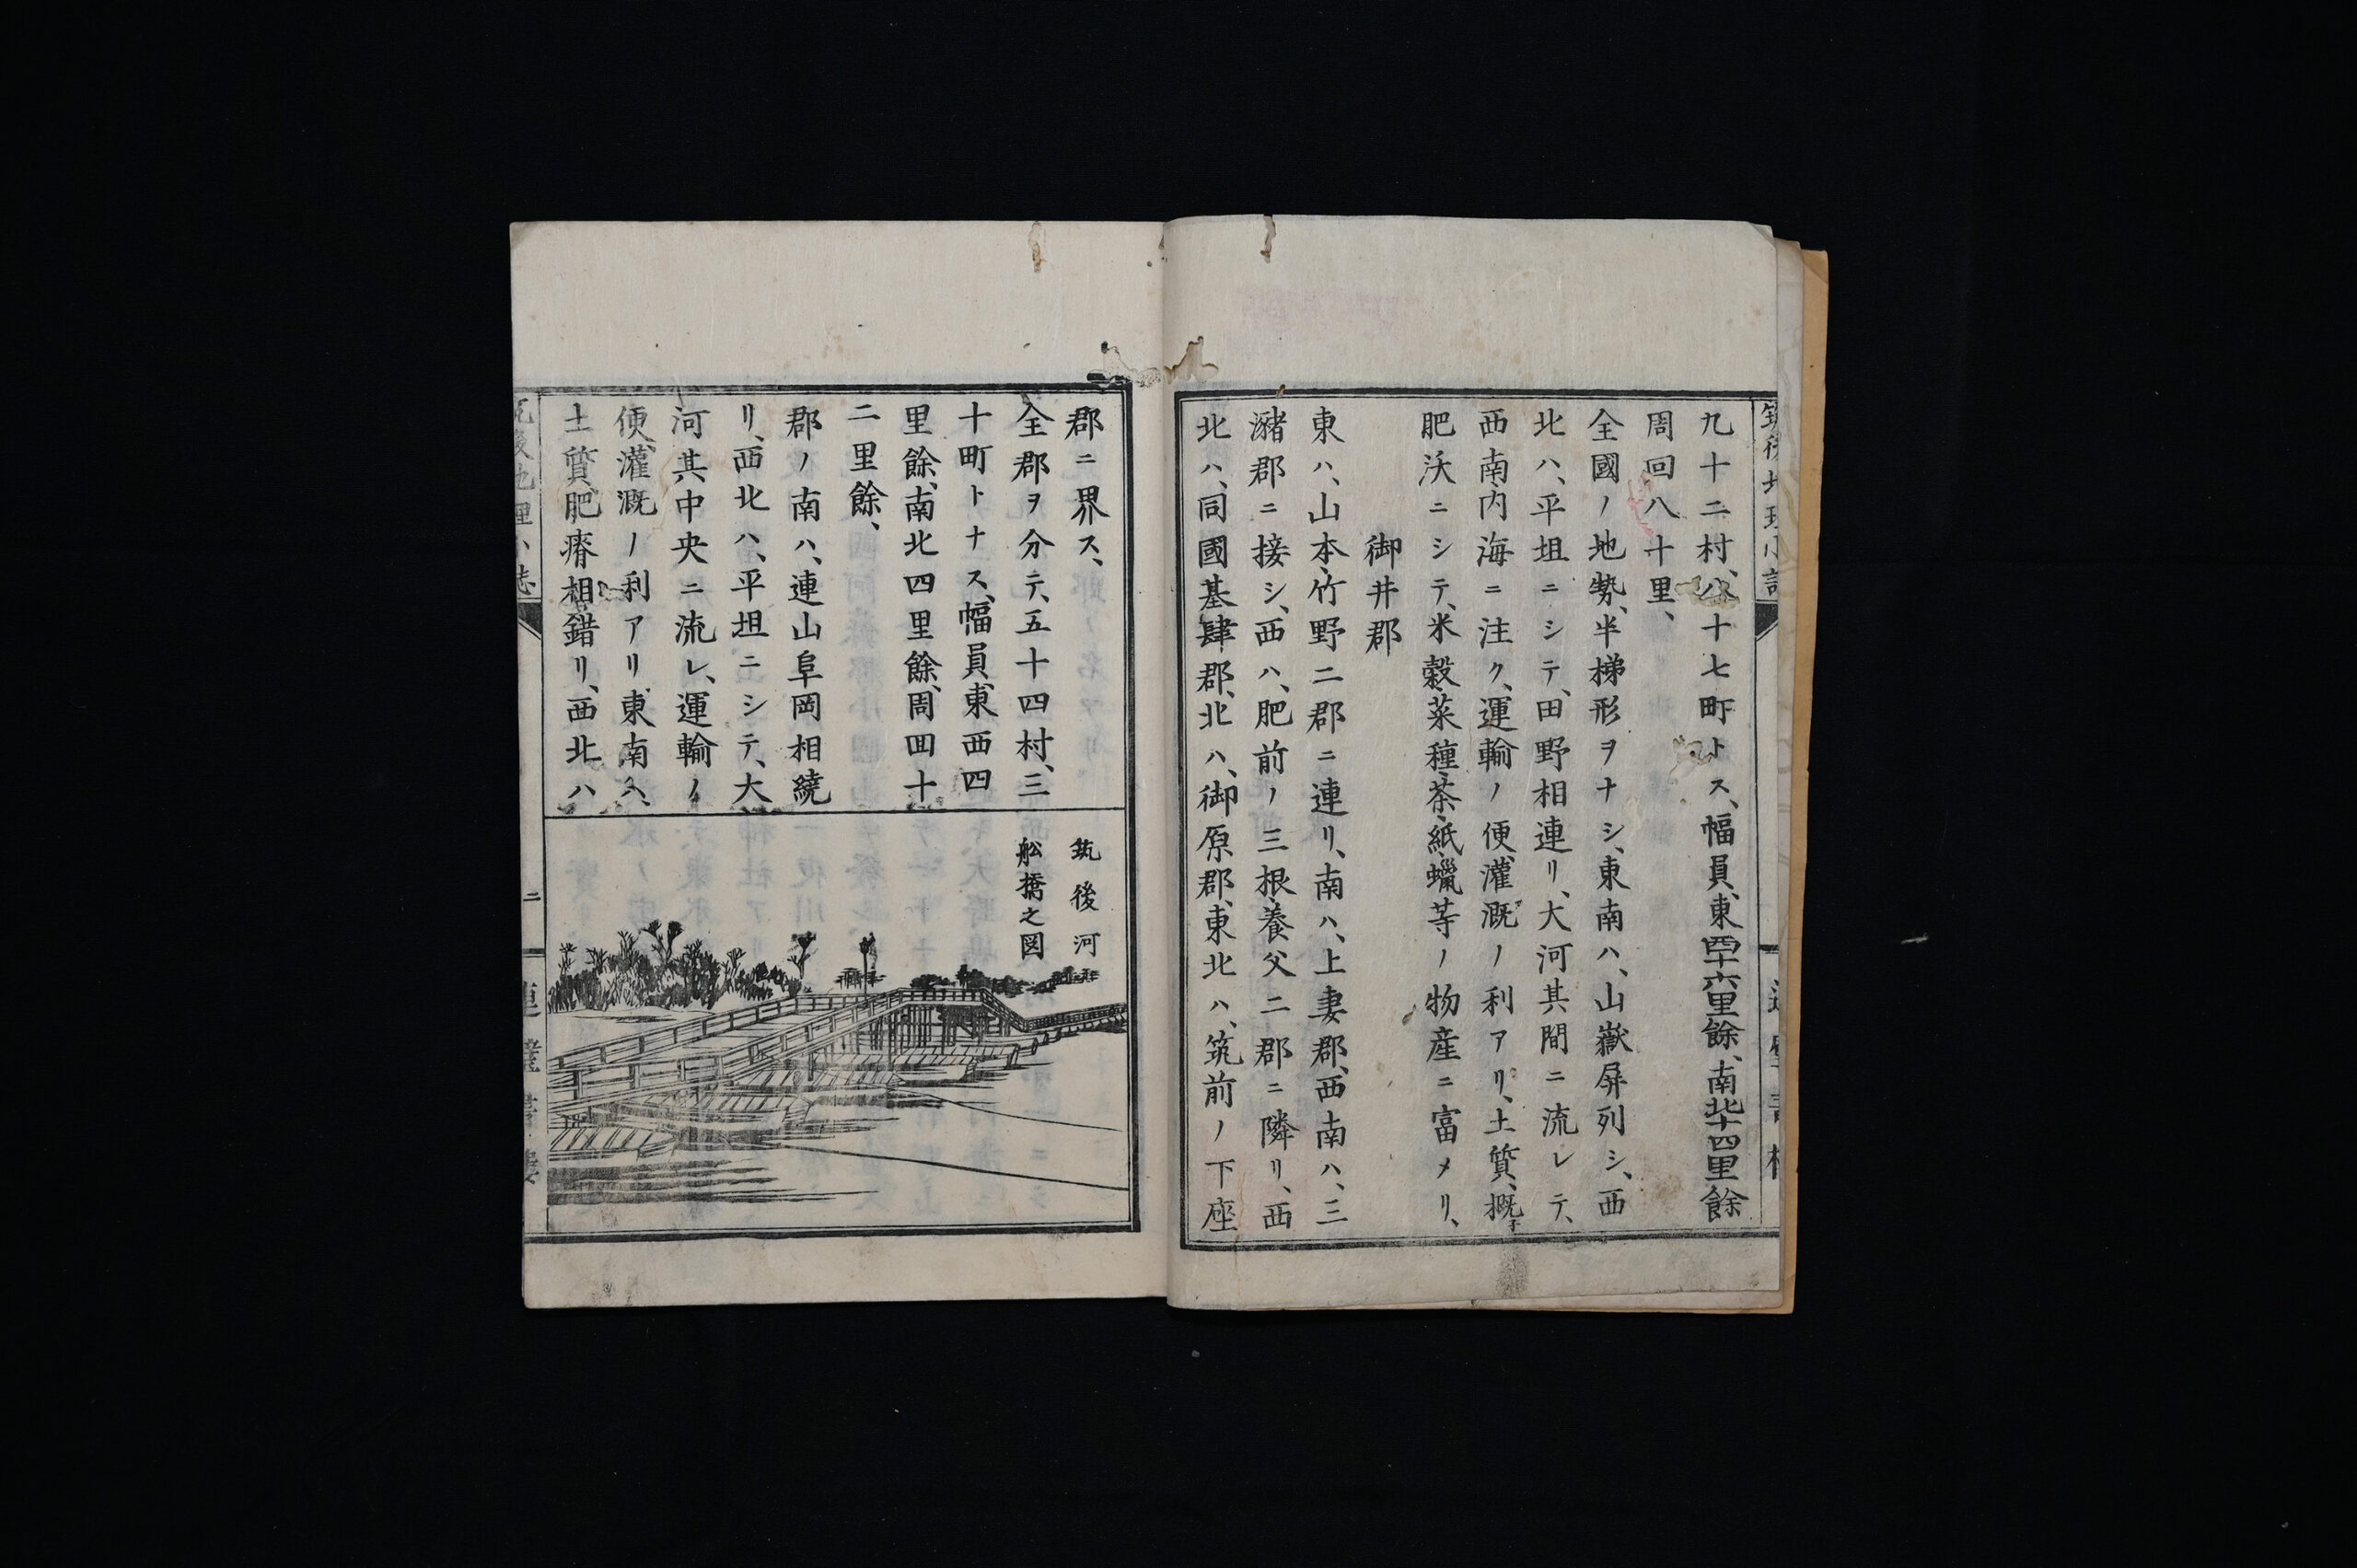 九十二村、八十七町トス、幅員、東西十六里餘、南北十四里餘
周回八十里、
全國ノ地勢、半梯形ヲナシ、東南ハ、山嶽屏列シ、西
北ハ、平坦ニシテ、田野相連リ、大河其間ニ流レテ、
西南、内海ニ注ク、運輸ノ便、灌漑ノ利アリ、土質、概子
肥沃ニシテ、米、穀、菜種、茶、紙、蠟等ノ物産ニ富メリ、
御井郡
東ハ、山本、竹野二郡ニ連リ、南ハ、上妻郡、西南ハ、三
瀦郡ニ接シ、西ハ、肥前ノ三根、養父二郡ニ隣リ、西
北ハ、同國基肆郡、北ハ、御原郡、東北ハ、筑前ノ下座
郡ニ界ス、
全郡ヲ分テ、五十四村、三
十町トナス、幅員、東西四
里餘、南北四里餘、周回十
二里餘、
郡ノ南ハ、連山阜岡相繞
リ、西北ハ、平坦ニシテ、大
河其中央ニ流レ、運輸ノ
便、灌漑ノ利アリ、東南ハ、
土質肥瘠相錯リ、西北ハ
筑後河
舩橋之図
二